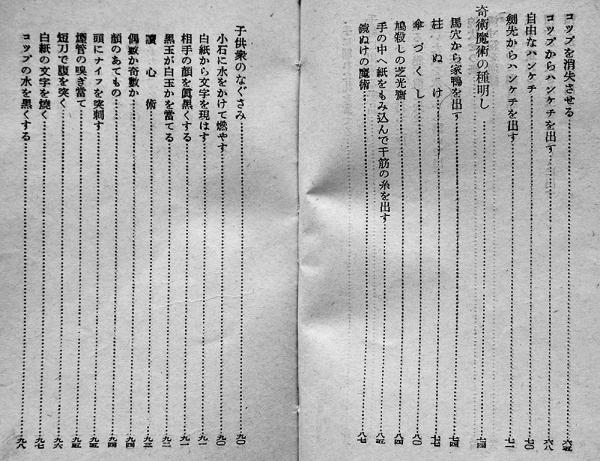 コップを消失させる……六五
コップからハンケチを出す……六八
自由なハンケチ……七〇
劍先からハンケチを出す……七一
奇術魔術の種明し……七四
馬穴から家鴨を出す……七四
柱ぬけ……七七
傘づくし……八〇
鳩殺しの芝光齋……八四
手の中へ紙をもみ込んで千筋の糸を出す……八五
鏡ぬけの魔術……八七
子供衆のなぐさみ……九〇
小石に水をかけて燃やす……九〇
白紙から文字を現はす……九一
相手の顔を眞黒くする……九一
黒玉が白玉かを當てる……九二
讀心術……九三
偶數か奇數か……九四
顔のあてもの……九四
頭にナイフを突刺す……九五
煙管の嗅ぎ當て……九五
短刀で腹を突く……九六
白紙の文字を燒く……九七
コップの水を黒くする……九八